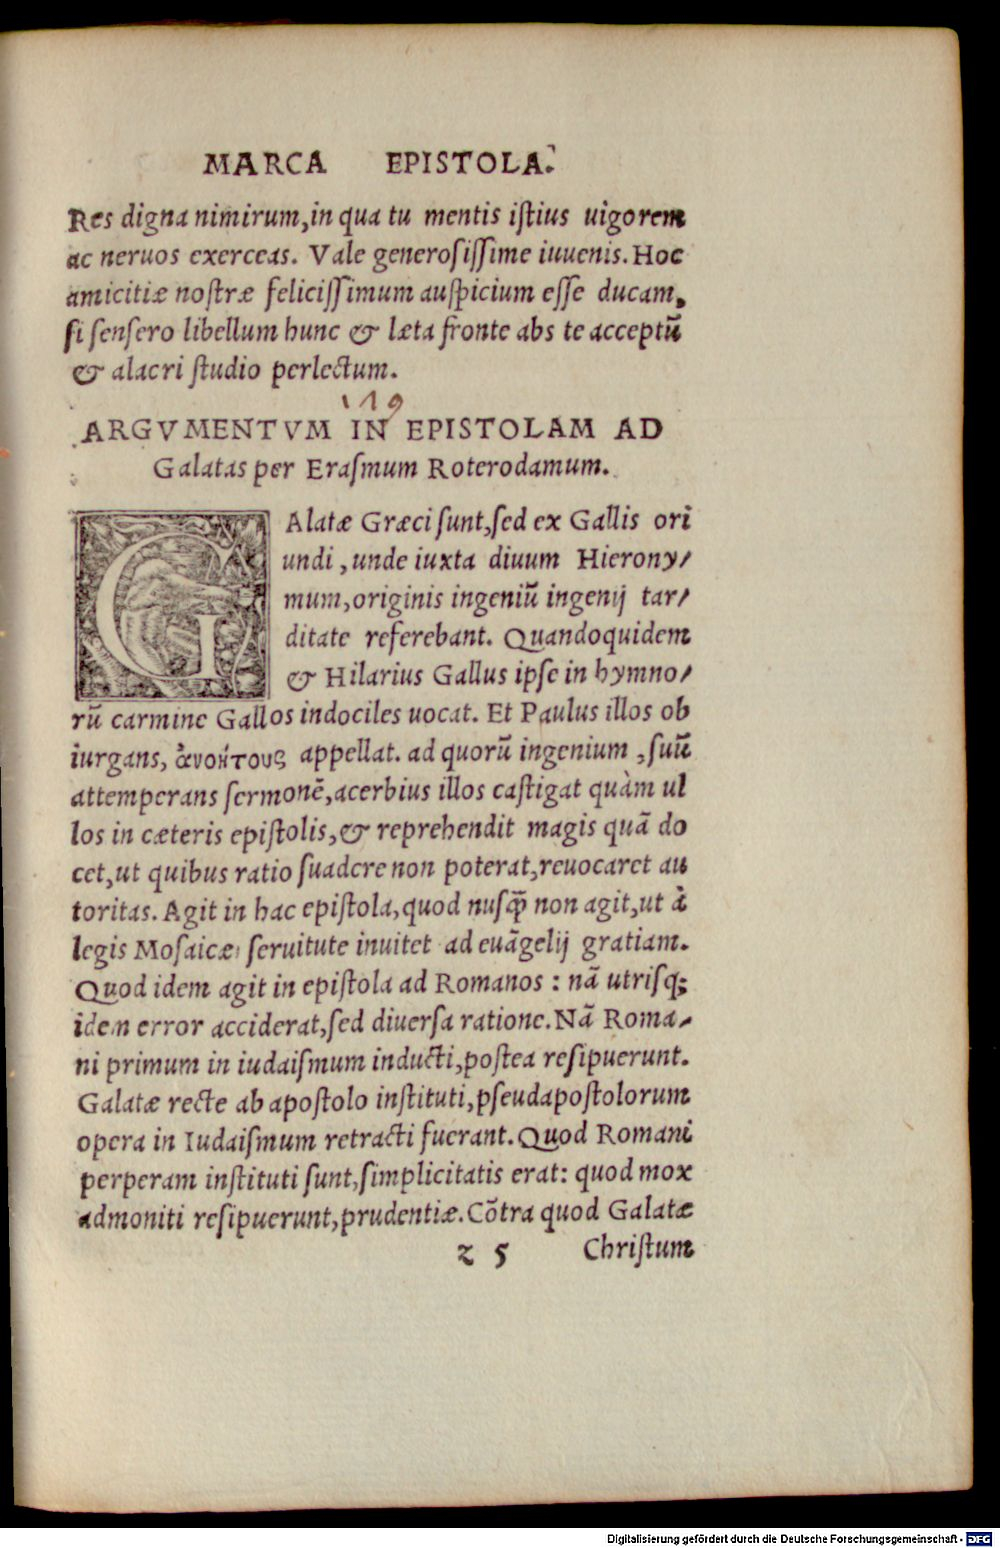 MARCA EPISTOLA.
Res digna nimirum, in qua tu mentis istius uigorem
ac neruos exerceas. Vale generosissime iuuenis. Hoc
amicitiæ nostræ felicissimum auspicium esse ducam,
si sensero libellum hunc & læta fronte abs te acceptũ
& alacri studio perlectum.
119
ARGVMENTVM IN EPISTOLAM AD
Galatas per Erasmum Roterodamum.
GAlatæ Græci sunt, sed ex Gallis ori
undi, unde iuxta diuum Hierony/
mum, originis ingeniũ ingenij tar/
ditate referebant. Quandoquidem
& Hilarius Gallus ipse in hymno/
rũ carmine Gallos indociles uocat. Et Paulus illos ob
iurgans, ἀνοήτους appellat. ad quorũ ingenium, suũ
attemperans sermonẽ, acerbius illos castigat quàm ul
los in cæteris epistolis, & reprehendit magis quã do
cet, ut quibus ratio suadere non poterat, reuocaret au
toritas. Agit in hac epistola, quod nusq̃ non agit, ut à
legis Mosaicæ seruitute inuitet ad euãgelij gratiam.
Quod idem agit in epistola ad Romanos: nã utrisq;
idem error acciderat, sed diuersa ratione. Nã Roma/
ni primum in iudaismum inducti, postea resipuerunt.
Galatæ recte ab apostolo instituti, pseudapostolorum
opera in Iudaismum retracti fuerant. Quod Romani
perperam instituti sunt, simplicitatis erat: quod mox
admoniti resipuerunt, prudentiæ. Cõtra quod Galatæ
z 5 Christum
Digitalisierung gefördert durch die Deutsche Forschungsgemeinschaft - DFG